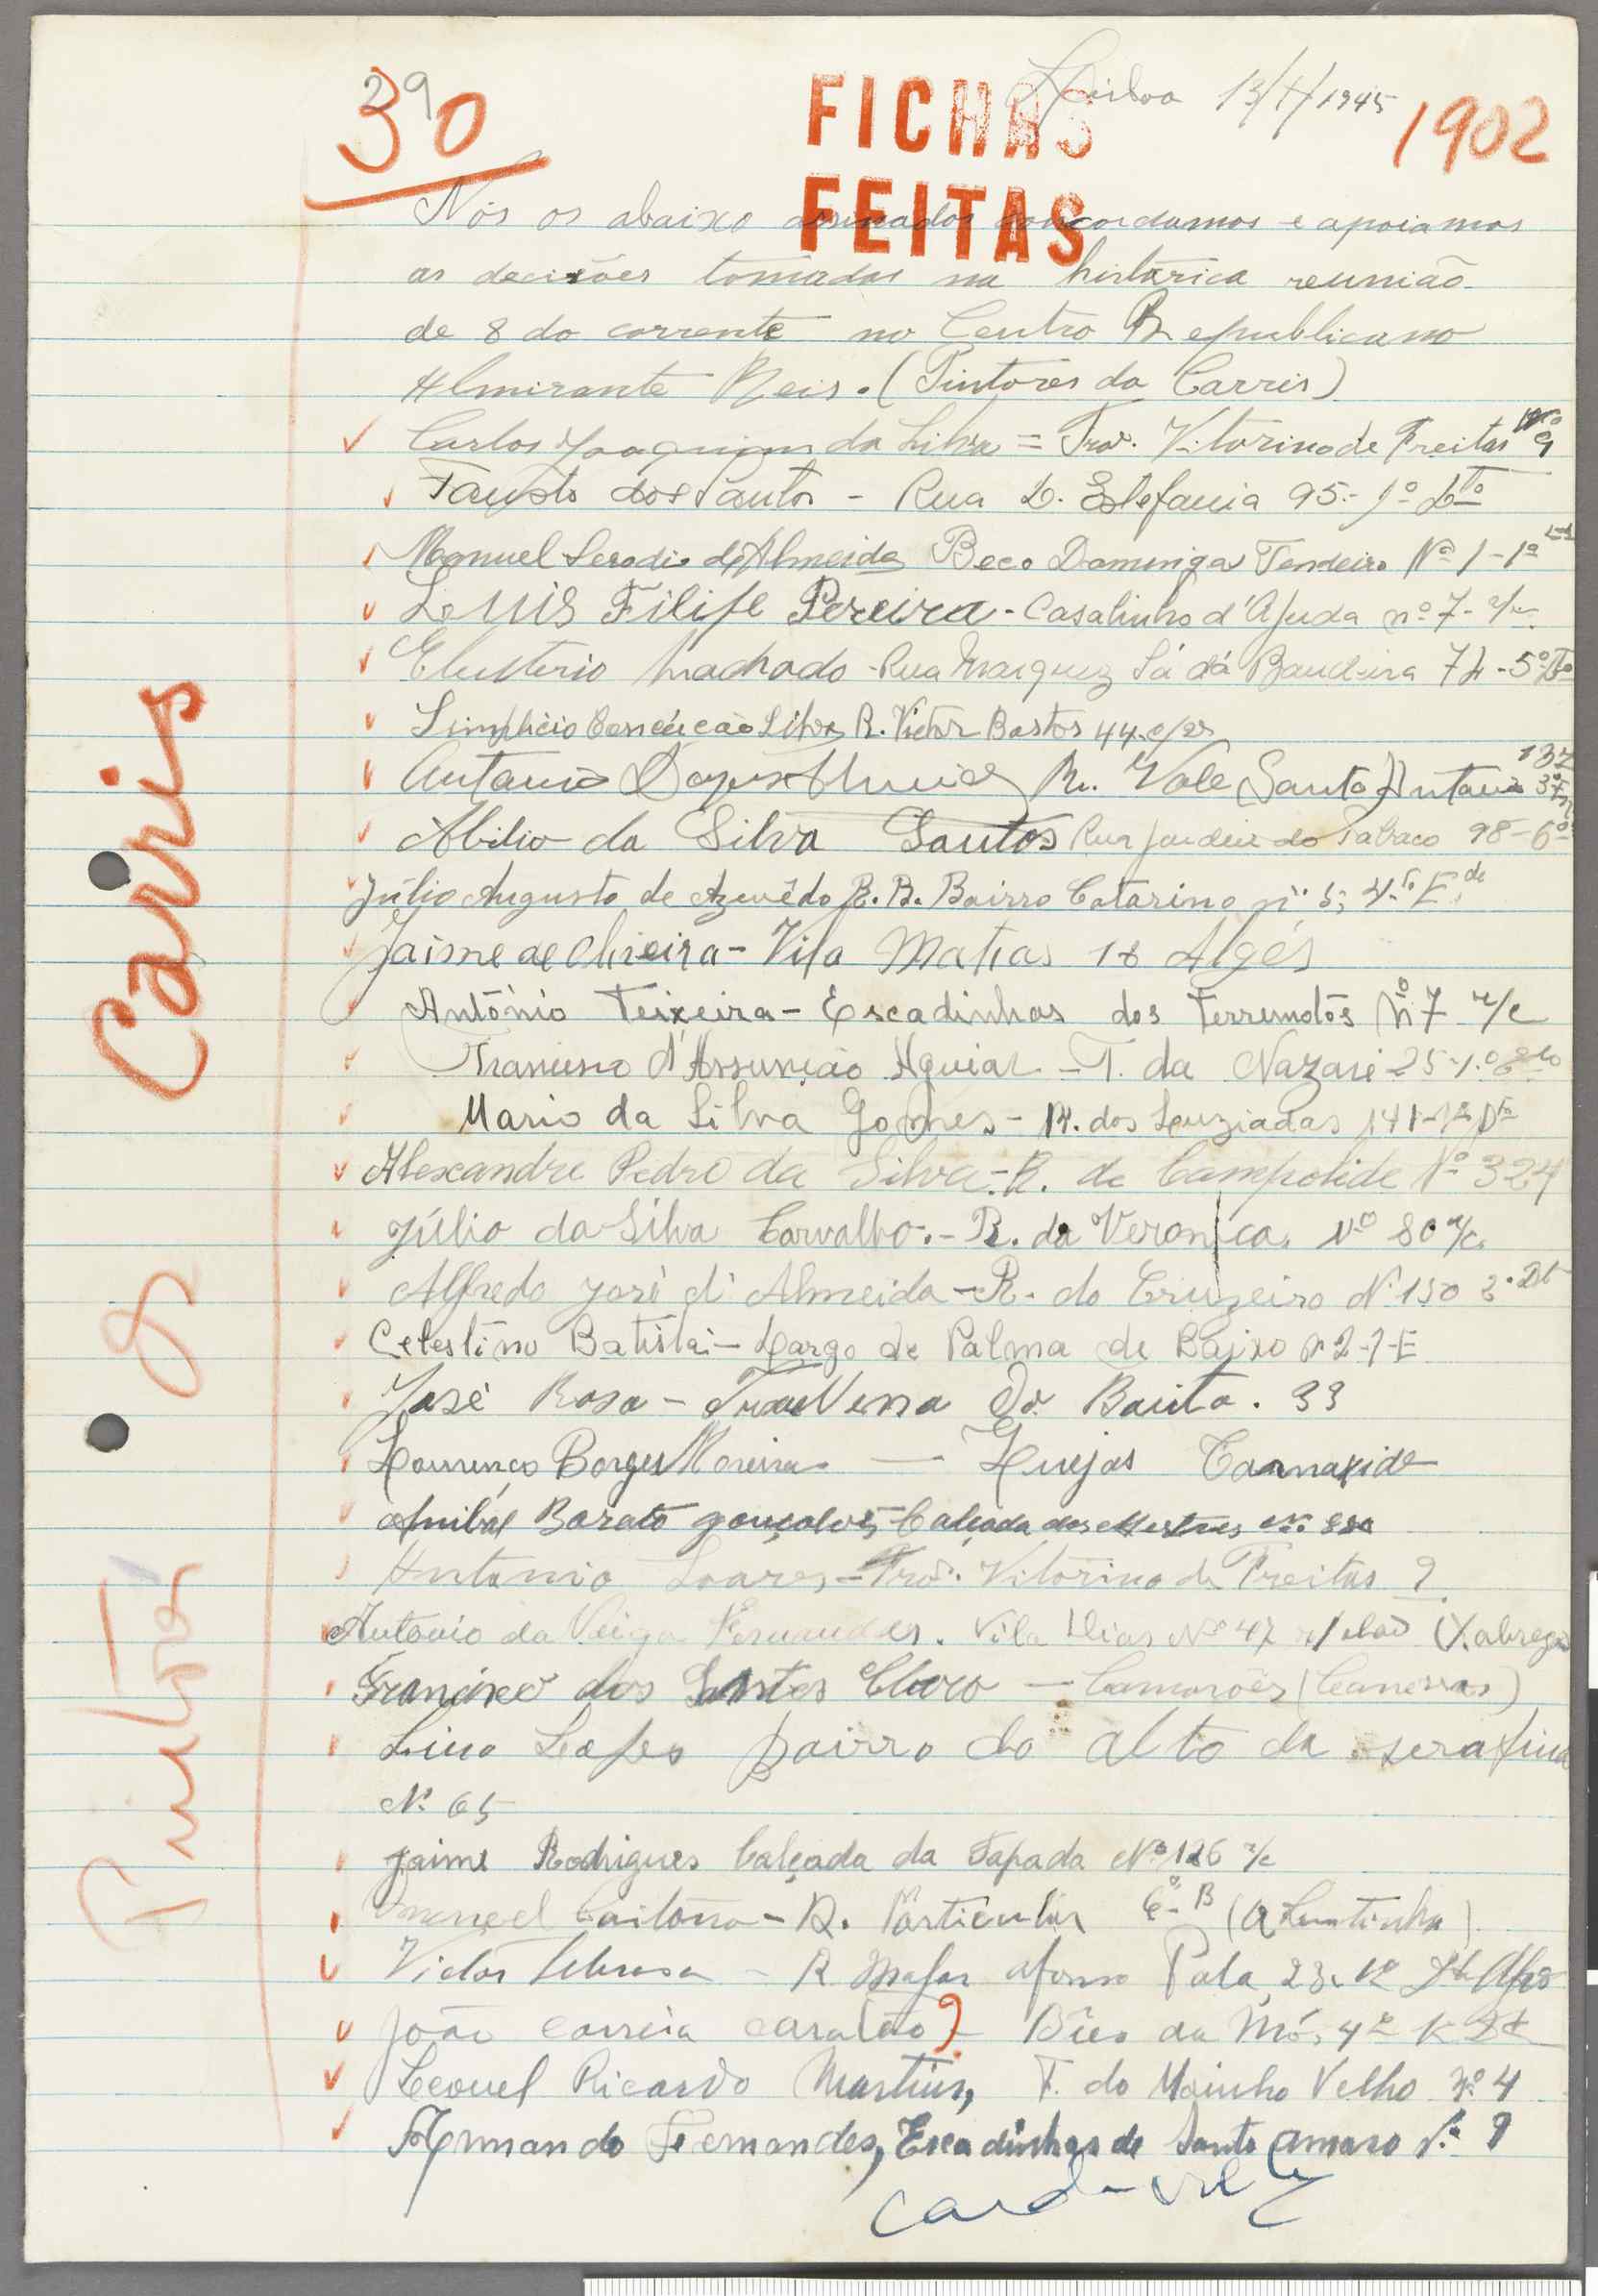 390
FICHAS
FEITAS
Lisboa 13/X/1945
1902
Nós os abaixo assinados concordamos e apoiamos
as decisões tomadas na histórica reunião
de 8 do corrente no Centro Republicano
Almirante Reis. (Pintores da Carris)
Carlos Joaquim da Silva = Trav. Vitorino de Freitas Nº 9
Fausto dos Santos - Rua D. Estefania 95-1º Dto
Manuel Serodio d'Almeida Beco Domingas Tendeiro Nº 1-1º
Luis Filipe Pereira - Casalinho d'Ajuda nº 7-r/c
Eleuterio Machado - Rua Marquez Sá da Bandeira 74-5º Dto
Simplicio Conceição Silva R. Victor Bastos 44
Antonio R. Vale Santo Antonio 132 3º
Abilio da Silva Santos Rua Jardim do Tabaco 98-6º
Júlio Augusto de Azevêdo R. B. Bairro Catarino nº 5, 4.º E.de
Jaime de Oliveira - Vila Matias 18 Algés
António Teixeira - Escadinhas dos Terremotos nº 7 r/c
Francisco d'Assunção Aguiar - T. da Nazaré 25-1.º
Mario da Silva Gomes - R. dos Luziadas 141-1º Dto
Alexandre Pedro da Silva - R. de Campolide Nº 324
Júlio da Silva Carvalho. - R. da Veronica. Nº 80 r/c.
Alfredo José d'Almeida - R. do Cruzeiro Nº 150 2º Dt
Celestino Batista - Largo de Palma de Baixo nº 2-1-E
José Rosa - Travessa Do Bauto. 33
Lourenço Borges Moreira - Linda Carnaxide
Anibal Barato Gonçalves - Calçada dos Mestres
Antonio Soares - Trav. Vitorino de Freitas 9
Antonio da Veiga Fernandes. Vila Dias Nº 47 r/chão (Xabregas
Francisco dos Santos Claro - Camarões (Caneças)
Lino Lopes bairro do alto da serafina
Nº 65
Jaime Rodrigues Calçada da Tapada Nº 126 r/c
Manuel Caitano - R. Particular 6-B (Azentinha)
Victor - R Major Afonso Pala, 23, 1º Dt Algés
João Correia ? Bêco da Mó, 4º
Leonel Ricardo Martins, T. do Moinho Velho nº 4
Armando Fernandes, Escadinhas de Santo Amaro Nº 9
Pintores da Carris